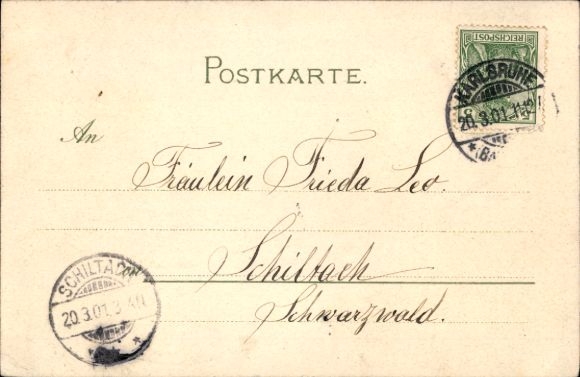 REICHSPOST
POSTKARTE.
KARLSRUHE
20.3.01.11-12
An
Fräulein Frieda Leo.
Schiltach
Schwarzwald.
SCHILTACH
20.3.01.